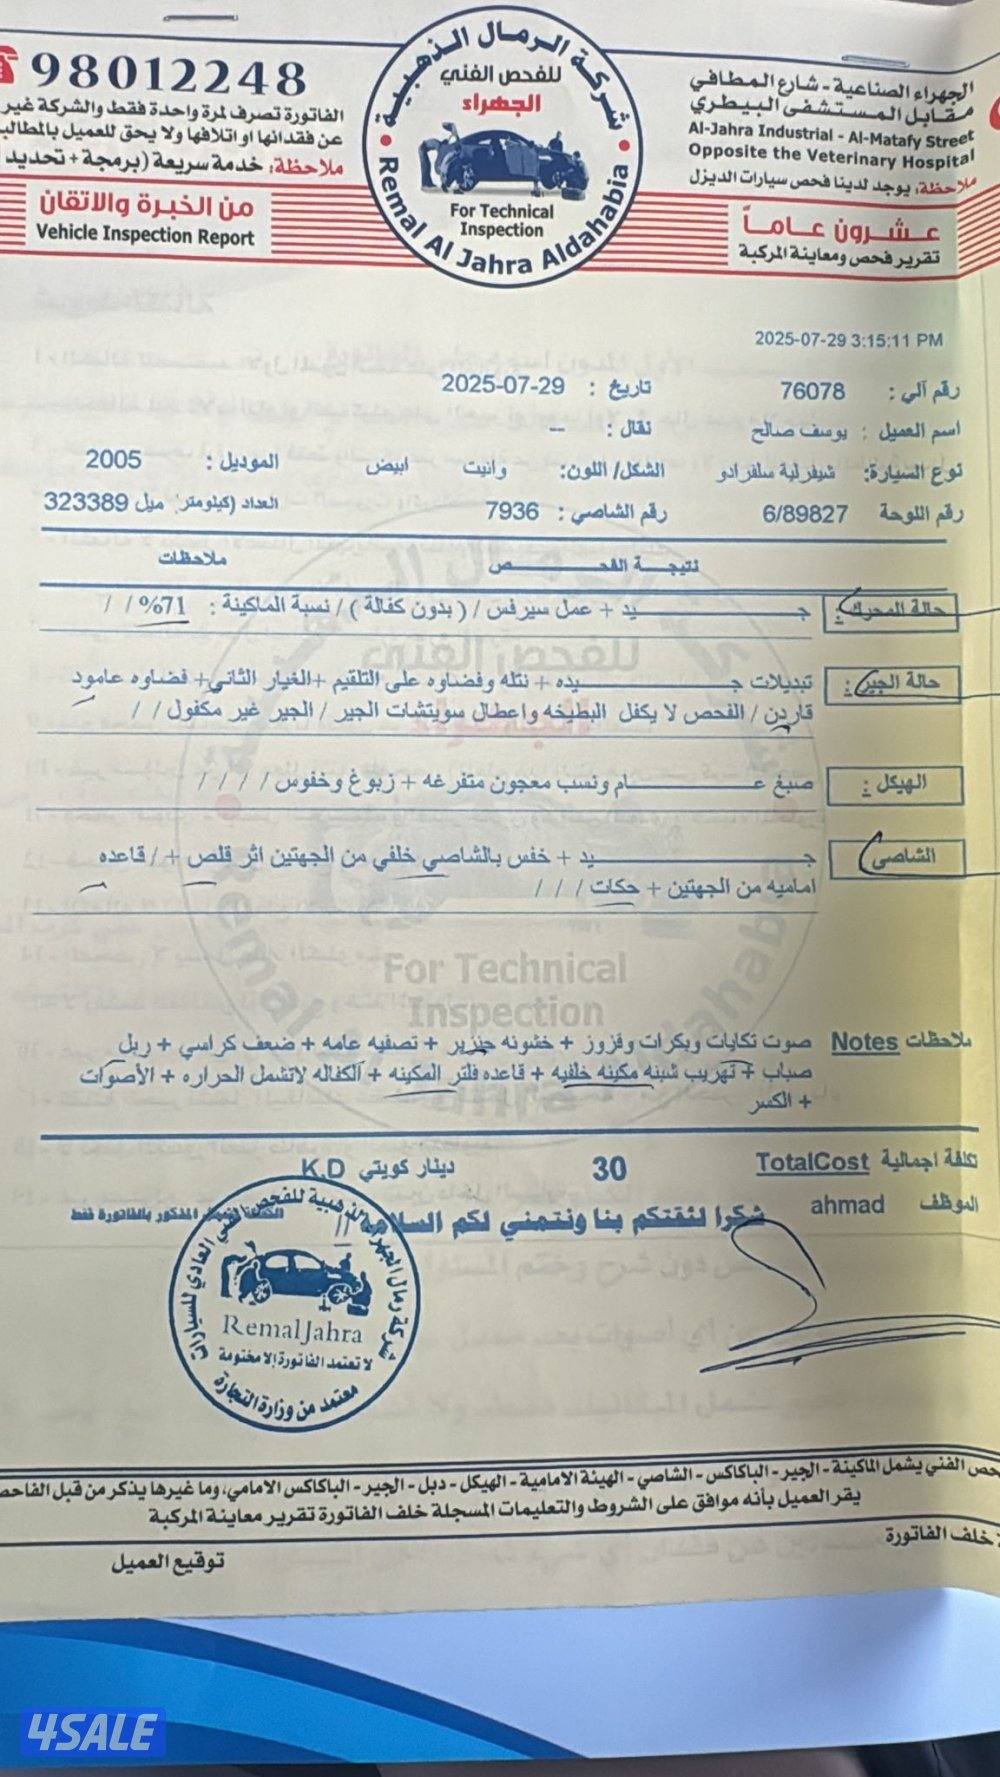 98012248
شركة الرمال الذهبية
للفحص الفني
الجهراء
For Technical
Inspection
Remal Al Jahra Aldahabia
الجهراء الصناعية - شارع المطافي
مقابل المستشفى البيطري
Al-Jahra Industrial - Al-Matafy Street
Opposite the Veterinary Hospital
ملاحظة: يوجد لدينا فحص سيارات الديزل
الفاتورة تصرف لمرة واحدة فقط والشركة غير
عن فقدانها او اتلافها ولا يحق للعميل بالمطالب
ملاحظة: خدمة سريعة (برمجة + تحديد
عشرون عاماً
تقرير فحص ومعاينة المركبة
من الخبرة والاتقان
Vehicle Inspection Report
2025-07-29 3:15:11 PM
رقم آلي : 76078 تاريخ : 2025-07-29
اسم العميل : يوسف صالح نقال : --
نوع السيارة: شيفرلية سلفرادو الشكل/ اللون: وانيت ابيض الموديل : 2005
رقم اللوحة 6/89827 رقم الشاصي : 7936 العداد (كيلومتر/ ميل 323389
نتيجة الفحص ملاحظات
حالة المحرك : جيد + عمل سيرفس / ( بدون كفالة ) / نسبة الماكينة : 71% / /
حالة الجير : تبديلات جيده + نتله وفضاوه على التلقيم +الغيار الثاني+ فضاوه عامود
قاردن / الفحص لا يكفل البطيخه واعطال سويتشات الجير / الجير غير مكفول / /
الهيكل : صبغ عام ونسب معجون متفرغه + زبوغ وخفوس / / / /
الشاصي جيد + خفس بالشاصي خلفي من الجهتين اثر قلص + / قاعده
اماميه من الجهتين + حكات / / /
For Technical
Inspection
ملاحظات Notes صوت تكايات وبكرات وقزوز + خشونه جنزير + تصفيه عامه + ضعف كراسي + ربل
صباب + تهريب شبنه مكينه خلفيه + قاعده فلتر المكينه + الكفاله لاتشمل الحراره + الأصوات
+ الكسر
تكلفة اجمالية TotalCost 30 دينار كويتي K.D
الموظف ahmad شكرا لثقتكم بنا ونتمني لكم السلامة
الكفالة تشمل المذكور بالفاتورة فقط
Remal Jahra
لا تعتمد الفاتورة إلا مختومة
معتمد من وزارة التجارة
حص الفني يشمل الماكينة - الجير - الباكاكس - الشاصي - الهيئة الامامية - الهيكل - دبل - الجير - الباكاكس الامامي، وما غيرها يذكر من قبل الفاحص
يقر العميل بأنه موافق على الشروط والتعليمات المسجلة خلف الفاتورة تقرير معاينة المركبة
خلف الفاتورة
توقيع العميل
4SALE